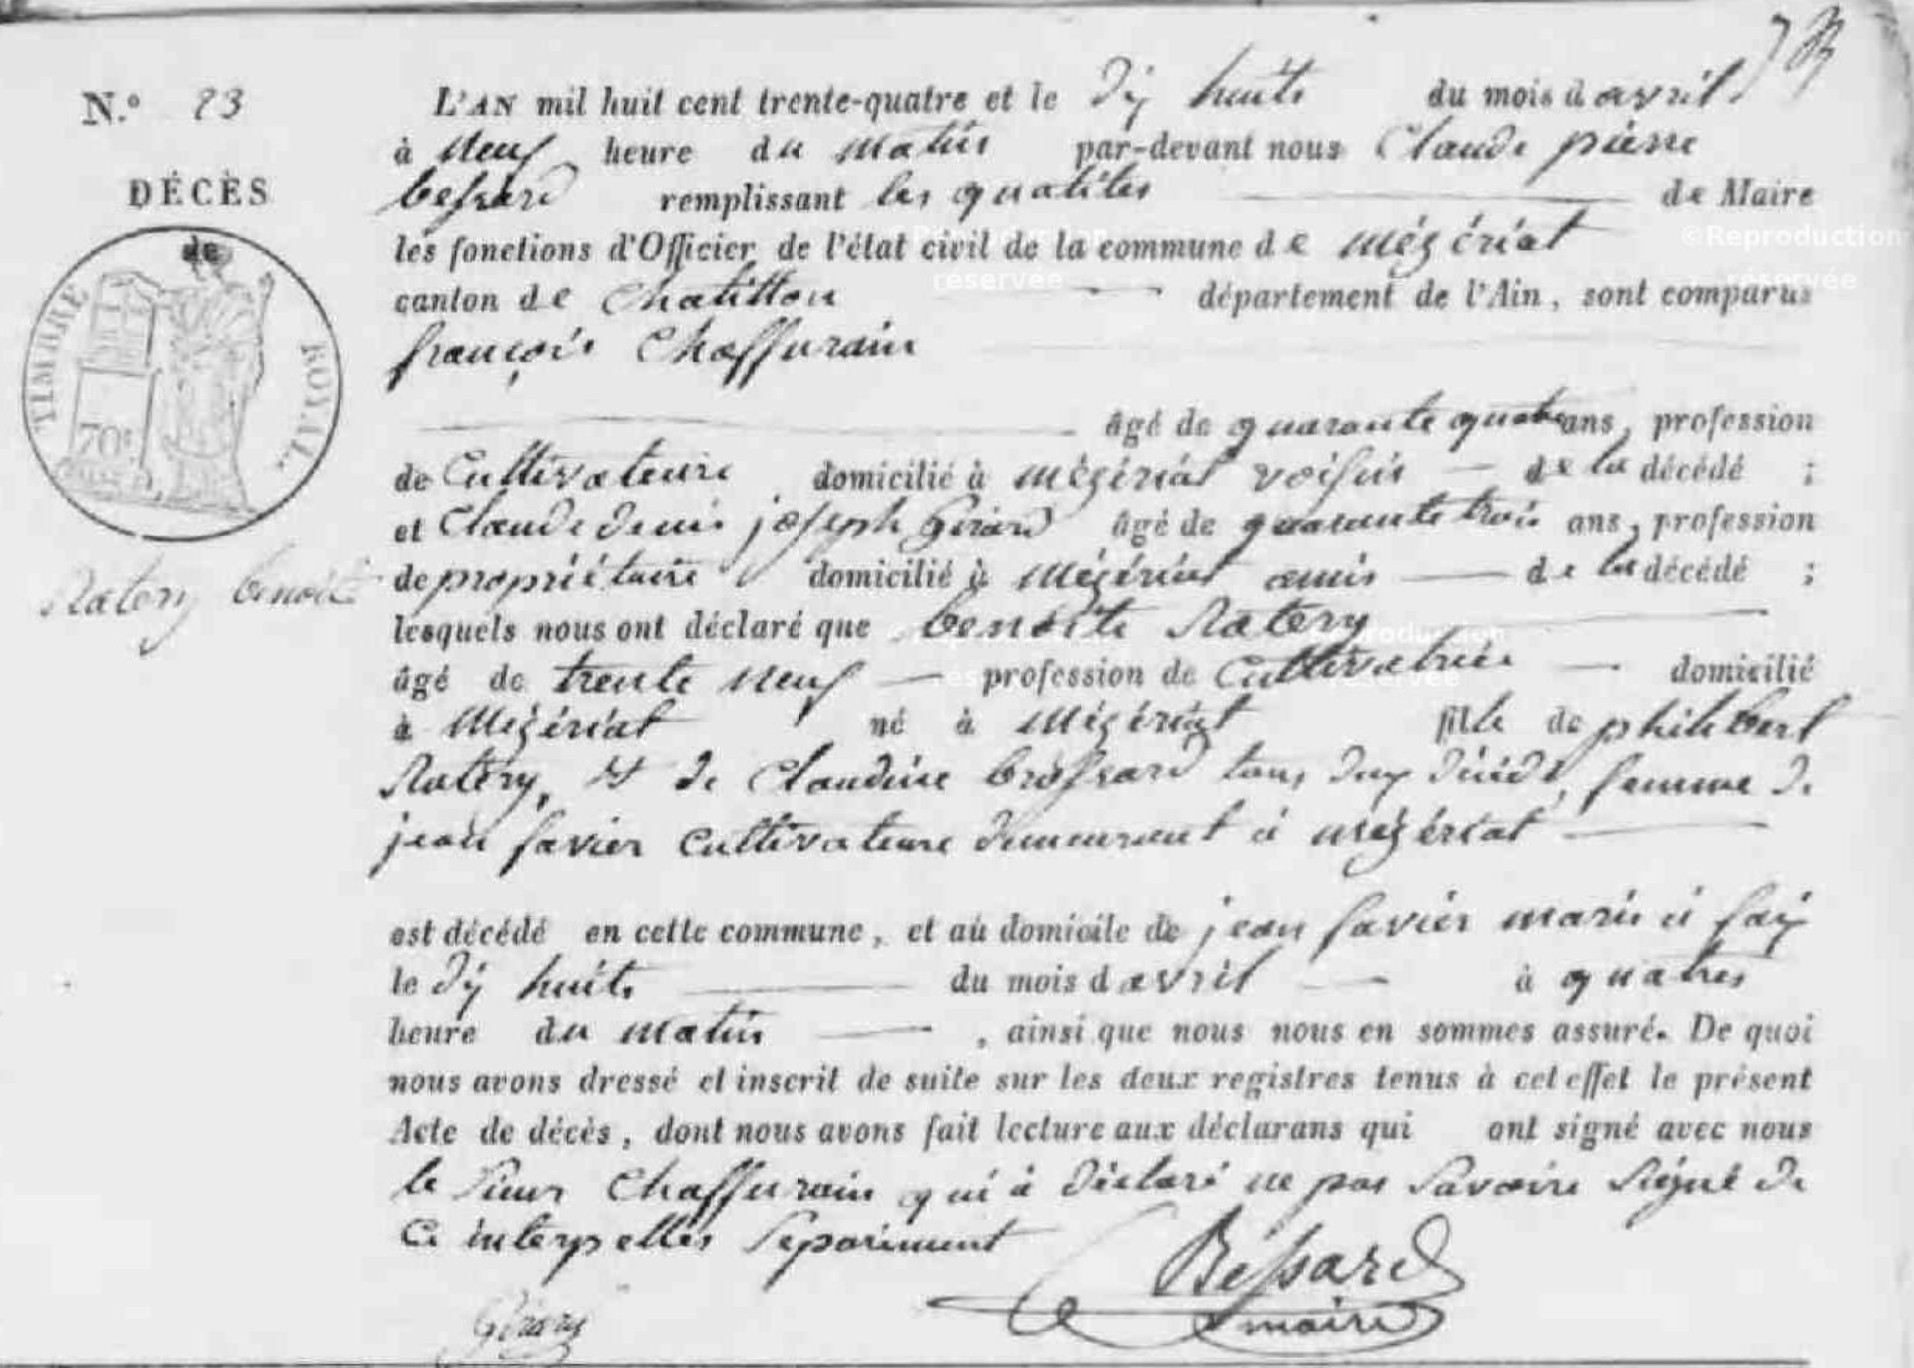 N.° 23
DÉCÈS
de
TIMBRE ROYAL.
70c
Ratery benoite
L'AN mil huit cent trente-quatre et le dij huit du mois d avril
à neuf heure du matin par-devant nous Claude pierre
bessard remplissant les qualités de Maire
les fonctions d'Officier de l'état civil de la commune de mézériat
canton de Chatillon département de l'Ain, sont comparus
françois Chaffurain
âgé de quarante quatre ans, profession
de Cultivateure domicilié à mézériat voisin de la décédé ;
et Claude denis joseph Girard âgé de quarante trois ans, profession
de propriétaire domicilié à Mézériat amis de la décédé ;
lesquels nous ont déclaré que benoite Ratery
âgé de trente neuf profession de Cultivatrice domicilié
à Mézériat né à Mézériat fille de philibert
Ratery, et de Claudine brossard tous deux décédé, femme de
jean favier Cultivateure demeurant à mézériat
est décédé en cette commune, et au domicile de jean favier marie à
le dij huit du mois d avril à quatres
heure du matin , ainsi que nous nous en sommes assuré. De quoi
nous avons dressé et inscrit de suite sur les deux registres tenus à cet effet le présent
Acte de décès, dont nous avons fait lecture aux déclarans qui ont signé avec nous
le sieur Chaffurain qui à déclaré ne pas Savoire Signé de
Ce interpellés Séparément
Bessard
maire
Girard
©Reproduction réservée